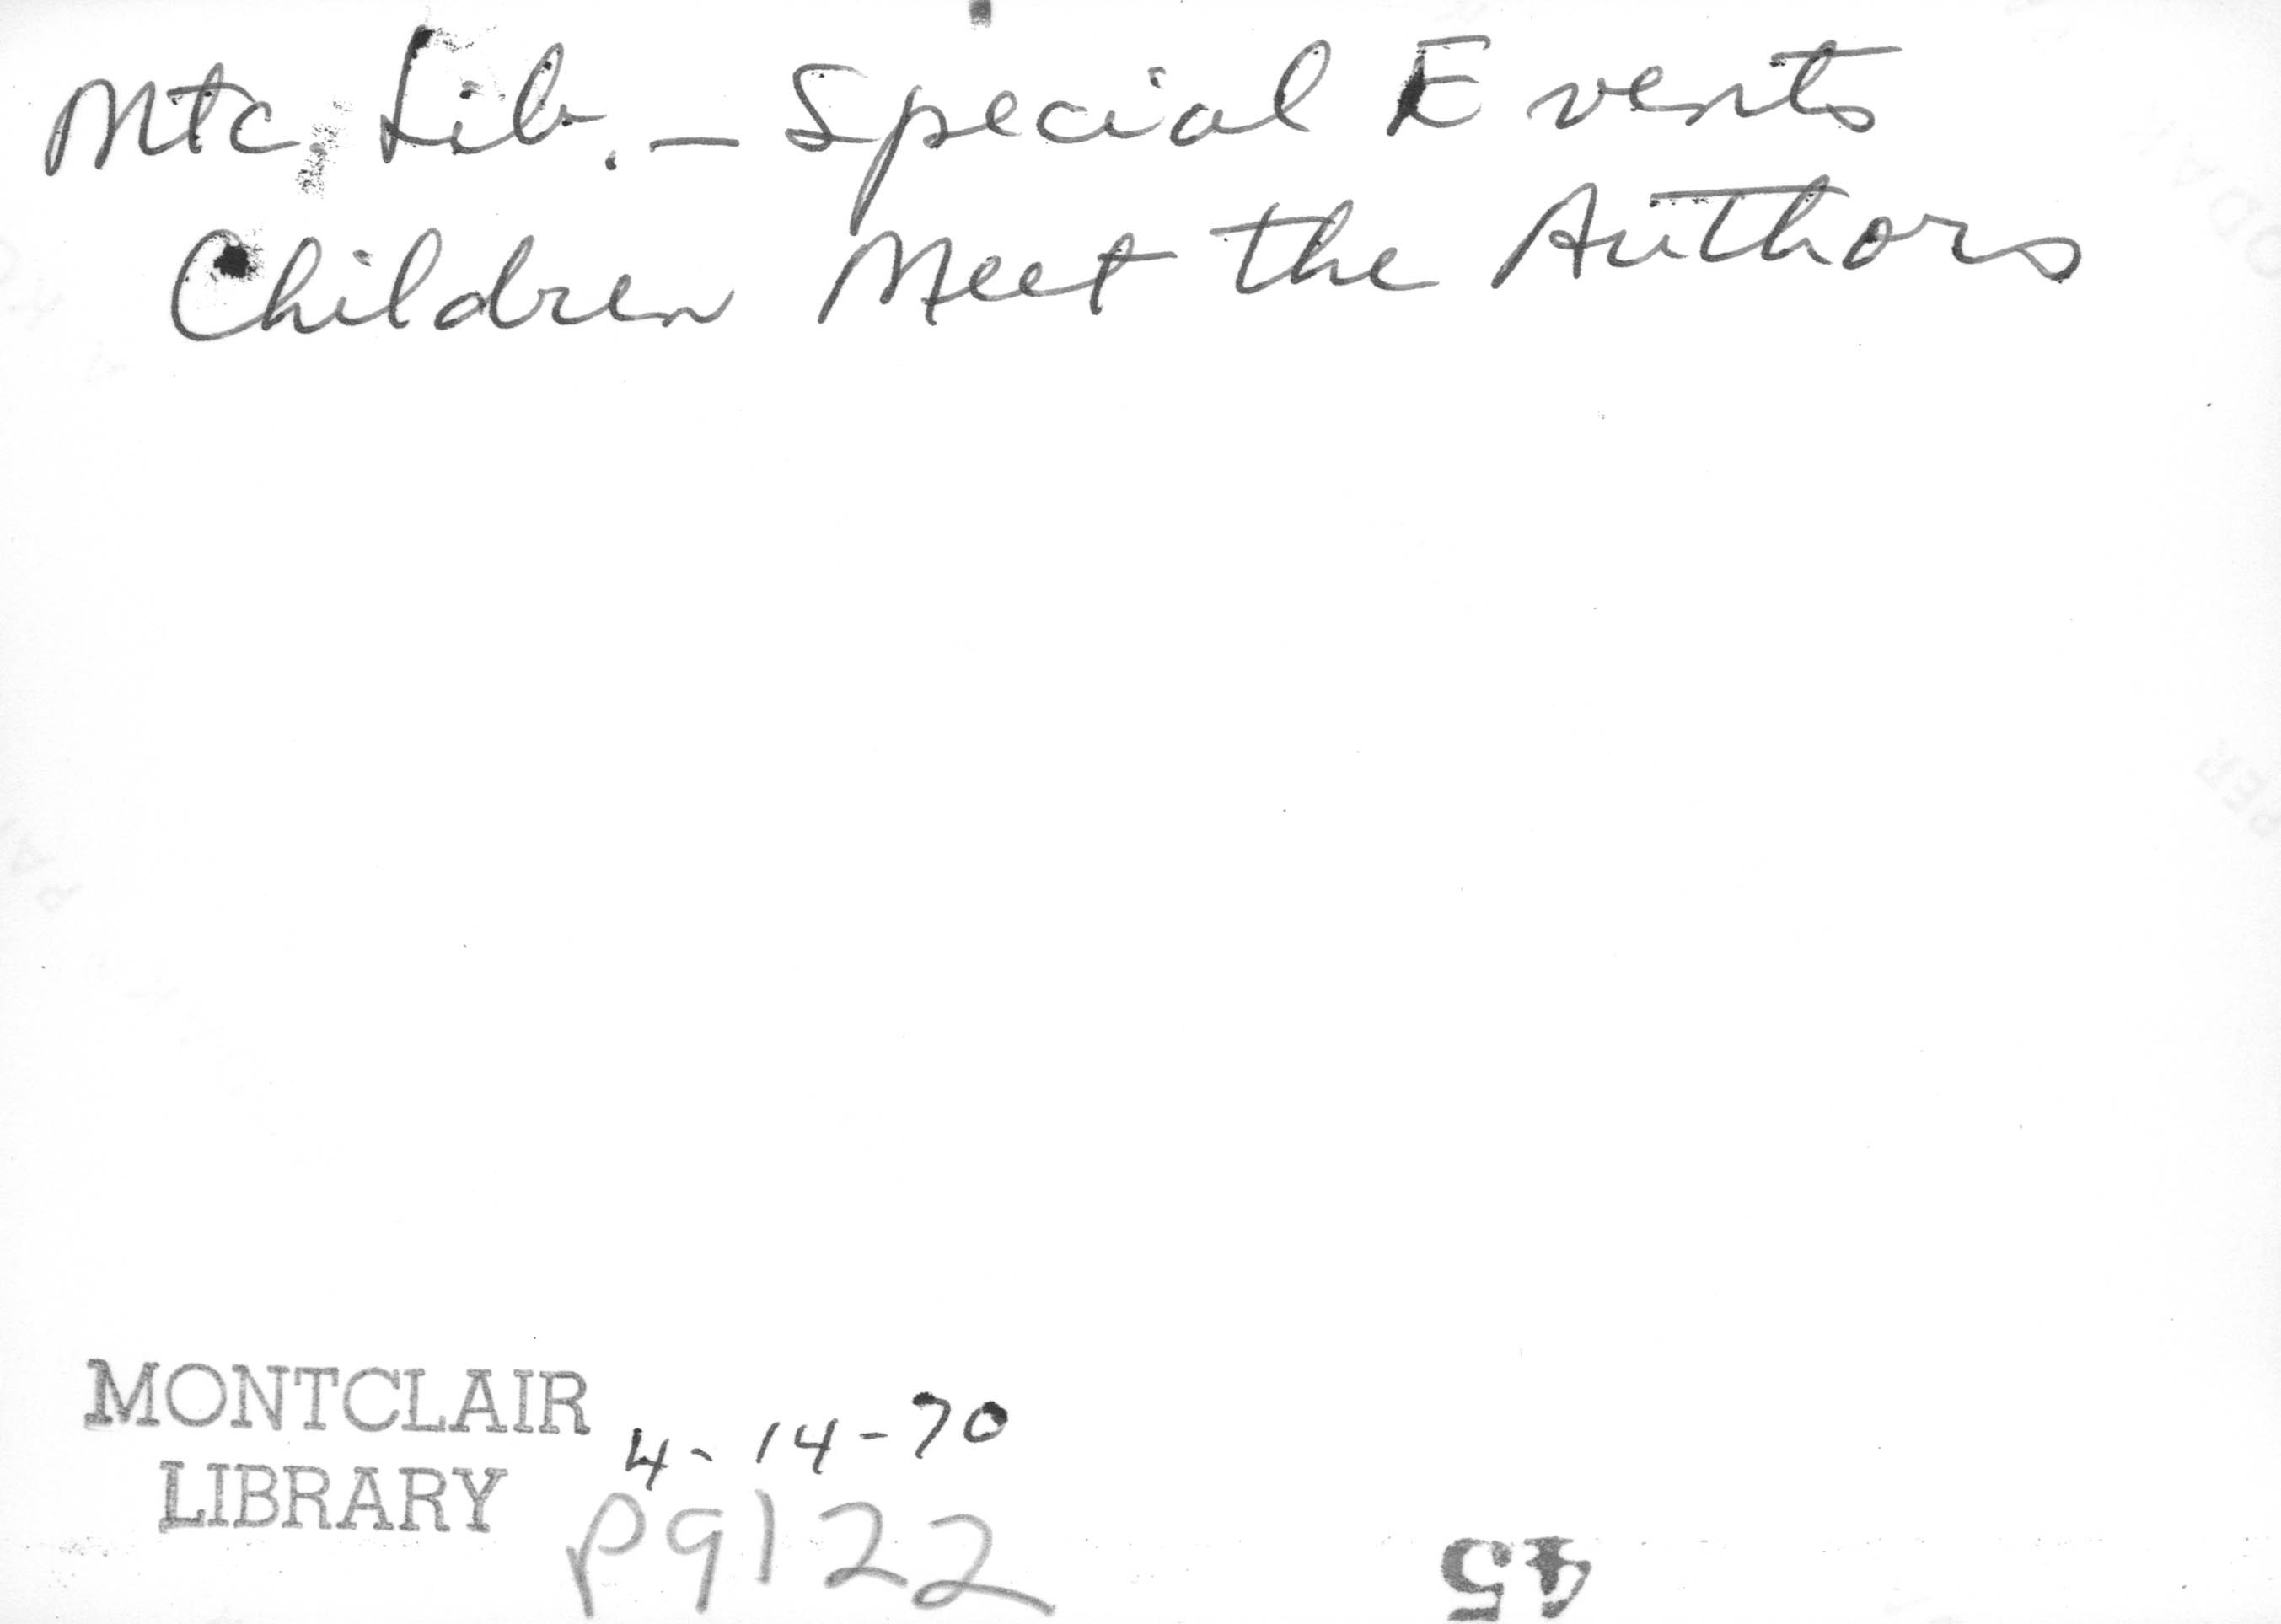 Mtc. Lib. — Special Events
Children Meet the Authors
MONTCLAIR
LIBRARY
4-14-70
P9122
45